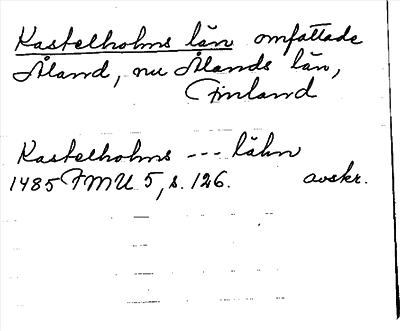 Kastelholms län omfattade
Åland, nu Ålands län,
Finland
Kastelholms --- lähn
1485 FMU 5, s. 126. avskr.